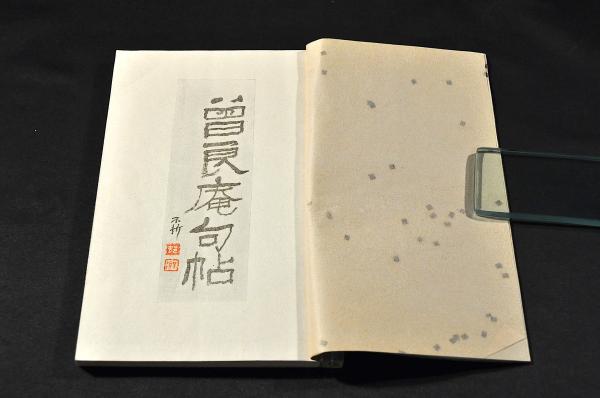 曽良庵句帖
不折